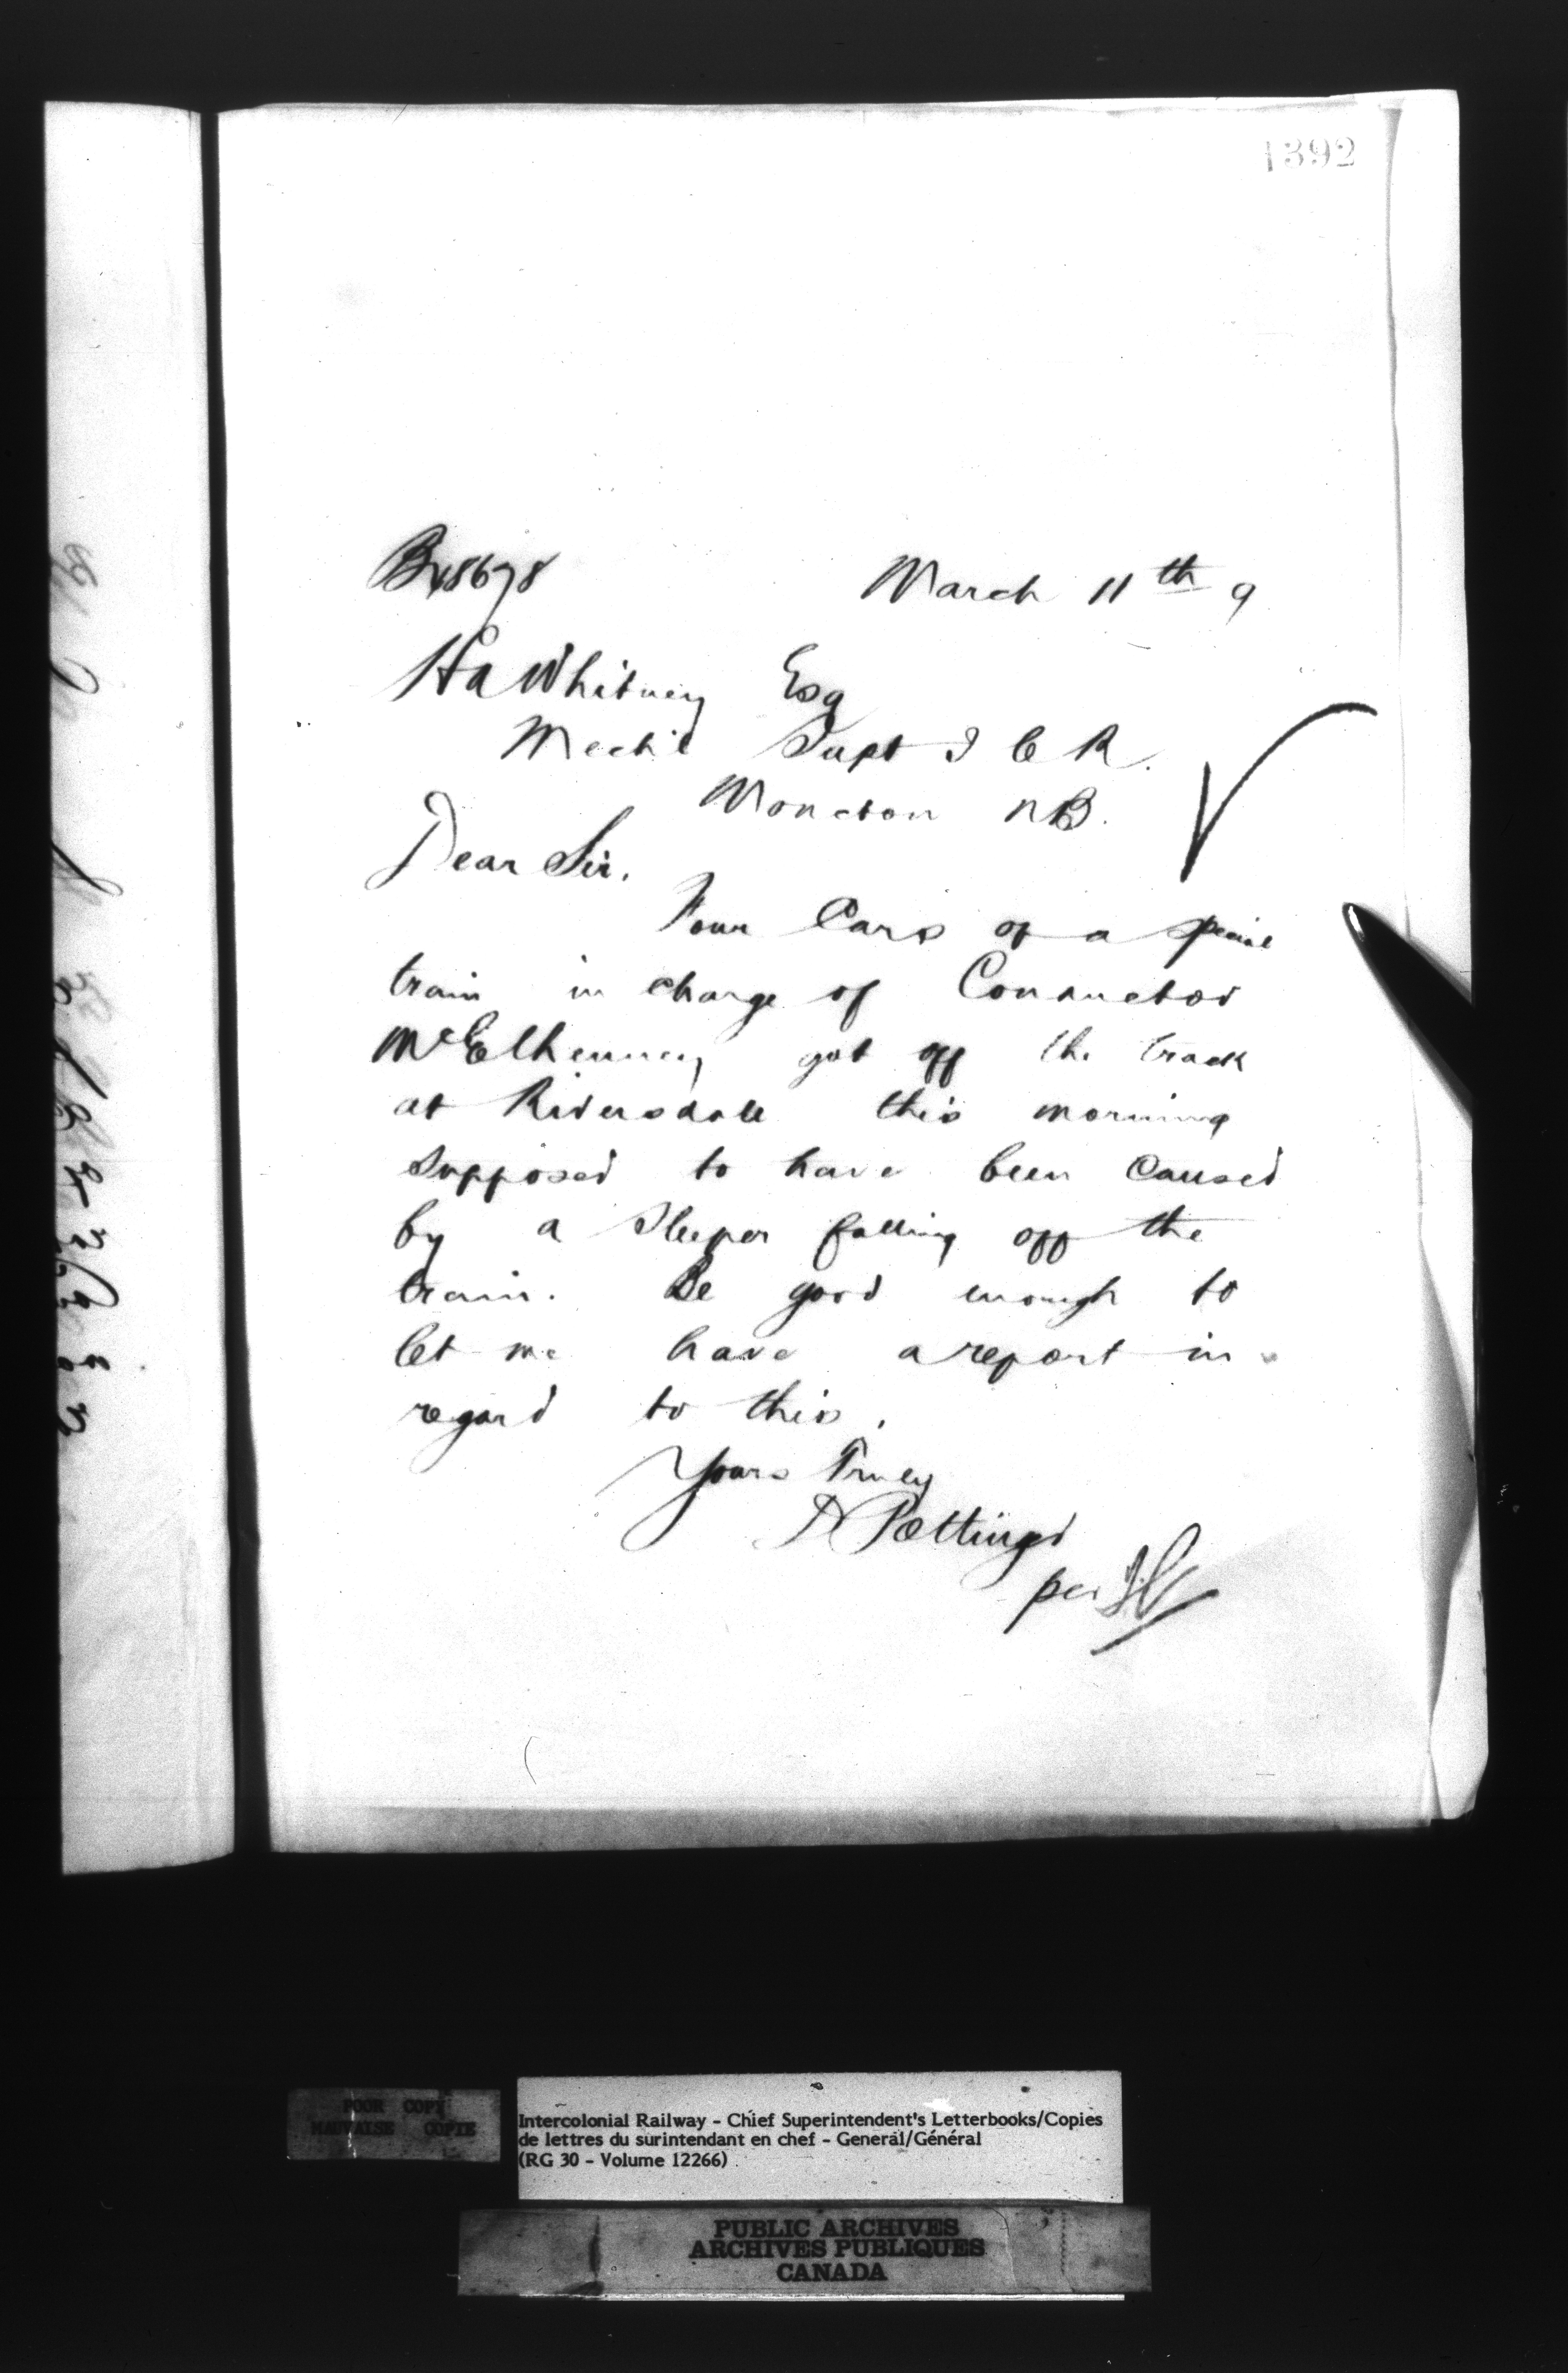 1392
March 11th 9
Ha Whitney Esq
Mech'l Supt I C R.
Moncton NB.
Dear Sir,
Four Cars of a special
train in charge of Conductor
McElhenney got off the track
at Riversdale this morning
supposed to have been caused
by a Sleeper falling off the
train. Be good enough to
let me have a report in
regard to this.
Yours Truly
D Pottinger
per
POOR COPY
MAUVAISE COPIE
Intercolonial Railway - Chief Superintendent's Letterbooks/Copies
de lettres du surintendant en chef - General/Général
(RG 30 - Volume 12266)
PUBLIC ARCHIVES
ARCHIVES PUBLIQUES
CANADA